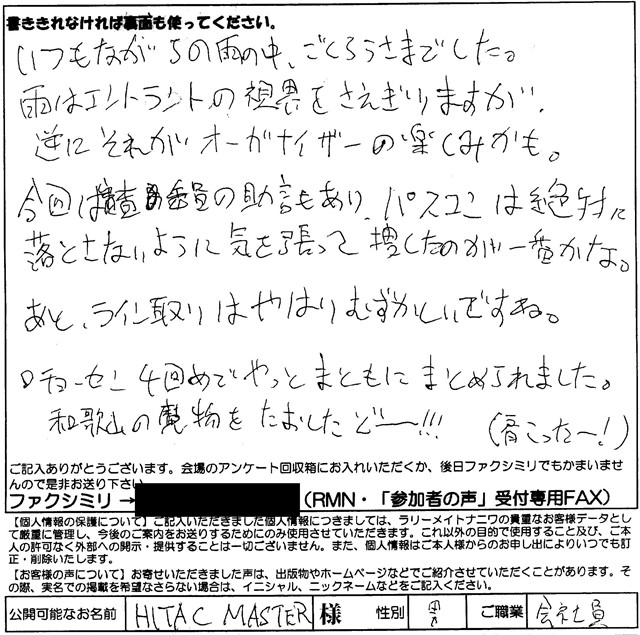 書ききれなければ裏面も使ってください。
いつもながらの雨の中、ごくろうさまでした。
雨はエントラントの視界をさえぎりますが、
逆にそれがオーガナイザーの楽しみかも。
今回は審査委員の助言もあり、パスコンは絶対に
落とさないように気を張って増したのが一番かな。
あと、ライン取りはやはりむずかしいですね。
チョーセン4回めでやっとまともにまとめられました。
和歌山の魔物をたおしたぞ〜!!!(肩こった〜!)
ご記入ありがとうございます。会場のアンケート回収箱にお入れいただくか、後日ファクシミリでもかまいませ
んので是非お送り下さい。
ファクシミリ→(RMN・「参加者の声」受付専用FAX)
【個人情報の保護について】ご記入いただきました個人情報につきましては、ラリーメイトナニワの貴重なお客様データとし
て厳重に管理し、今後のご案内をお送りするためにのみ使用させていただきます。これ以外の目的で使用すること及び、ご本
人の許可なく外部への開示・提供することは一切ございません。また、個人情報はご本人様からのお申し出によりいつでも訂
正・削除いたします。
【お客様の声について】お寄せいただきました声は、出版物やホームページなどでご紹介させていただくことがあります。そ
の際、実名での掲載を希望なさらない場合は、イニシャル、ニックネームなどをご記入ください。
公開可能なお名前 HITAC MASTER 様 性別 ♂ ご職業 会社員